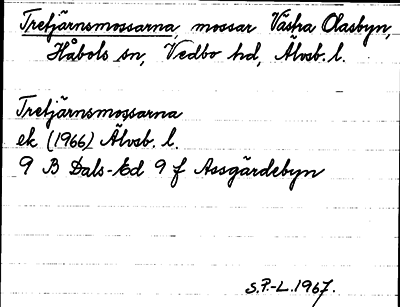 Tretjärnsmossarna, mossar Västra Olasbyn,
Håbols sn, Vedbo hd, Älvsb. l.
Tretjärnsmossarna
ek (1966) Älvsb. l.
9 B Dals-Ed 9 f Assgärdebyn
S.P.-L. 1967.